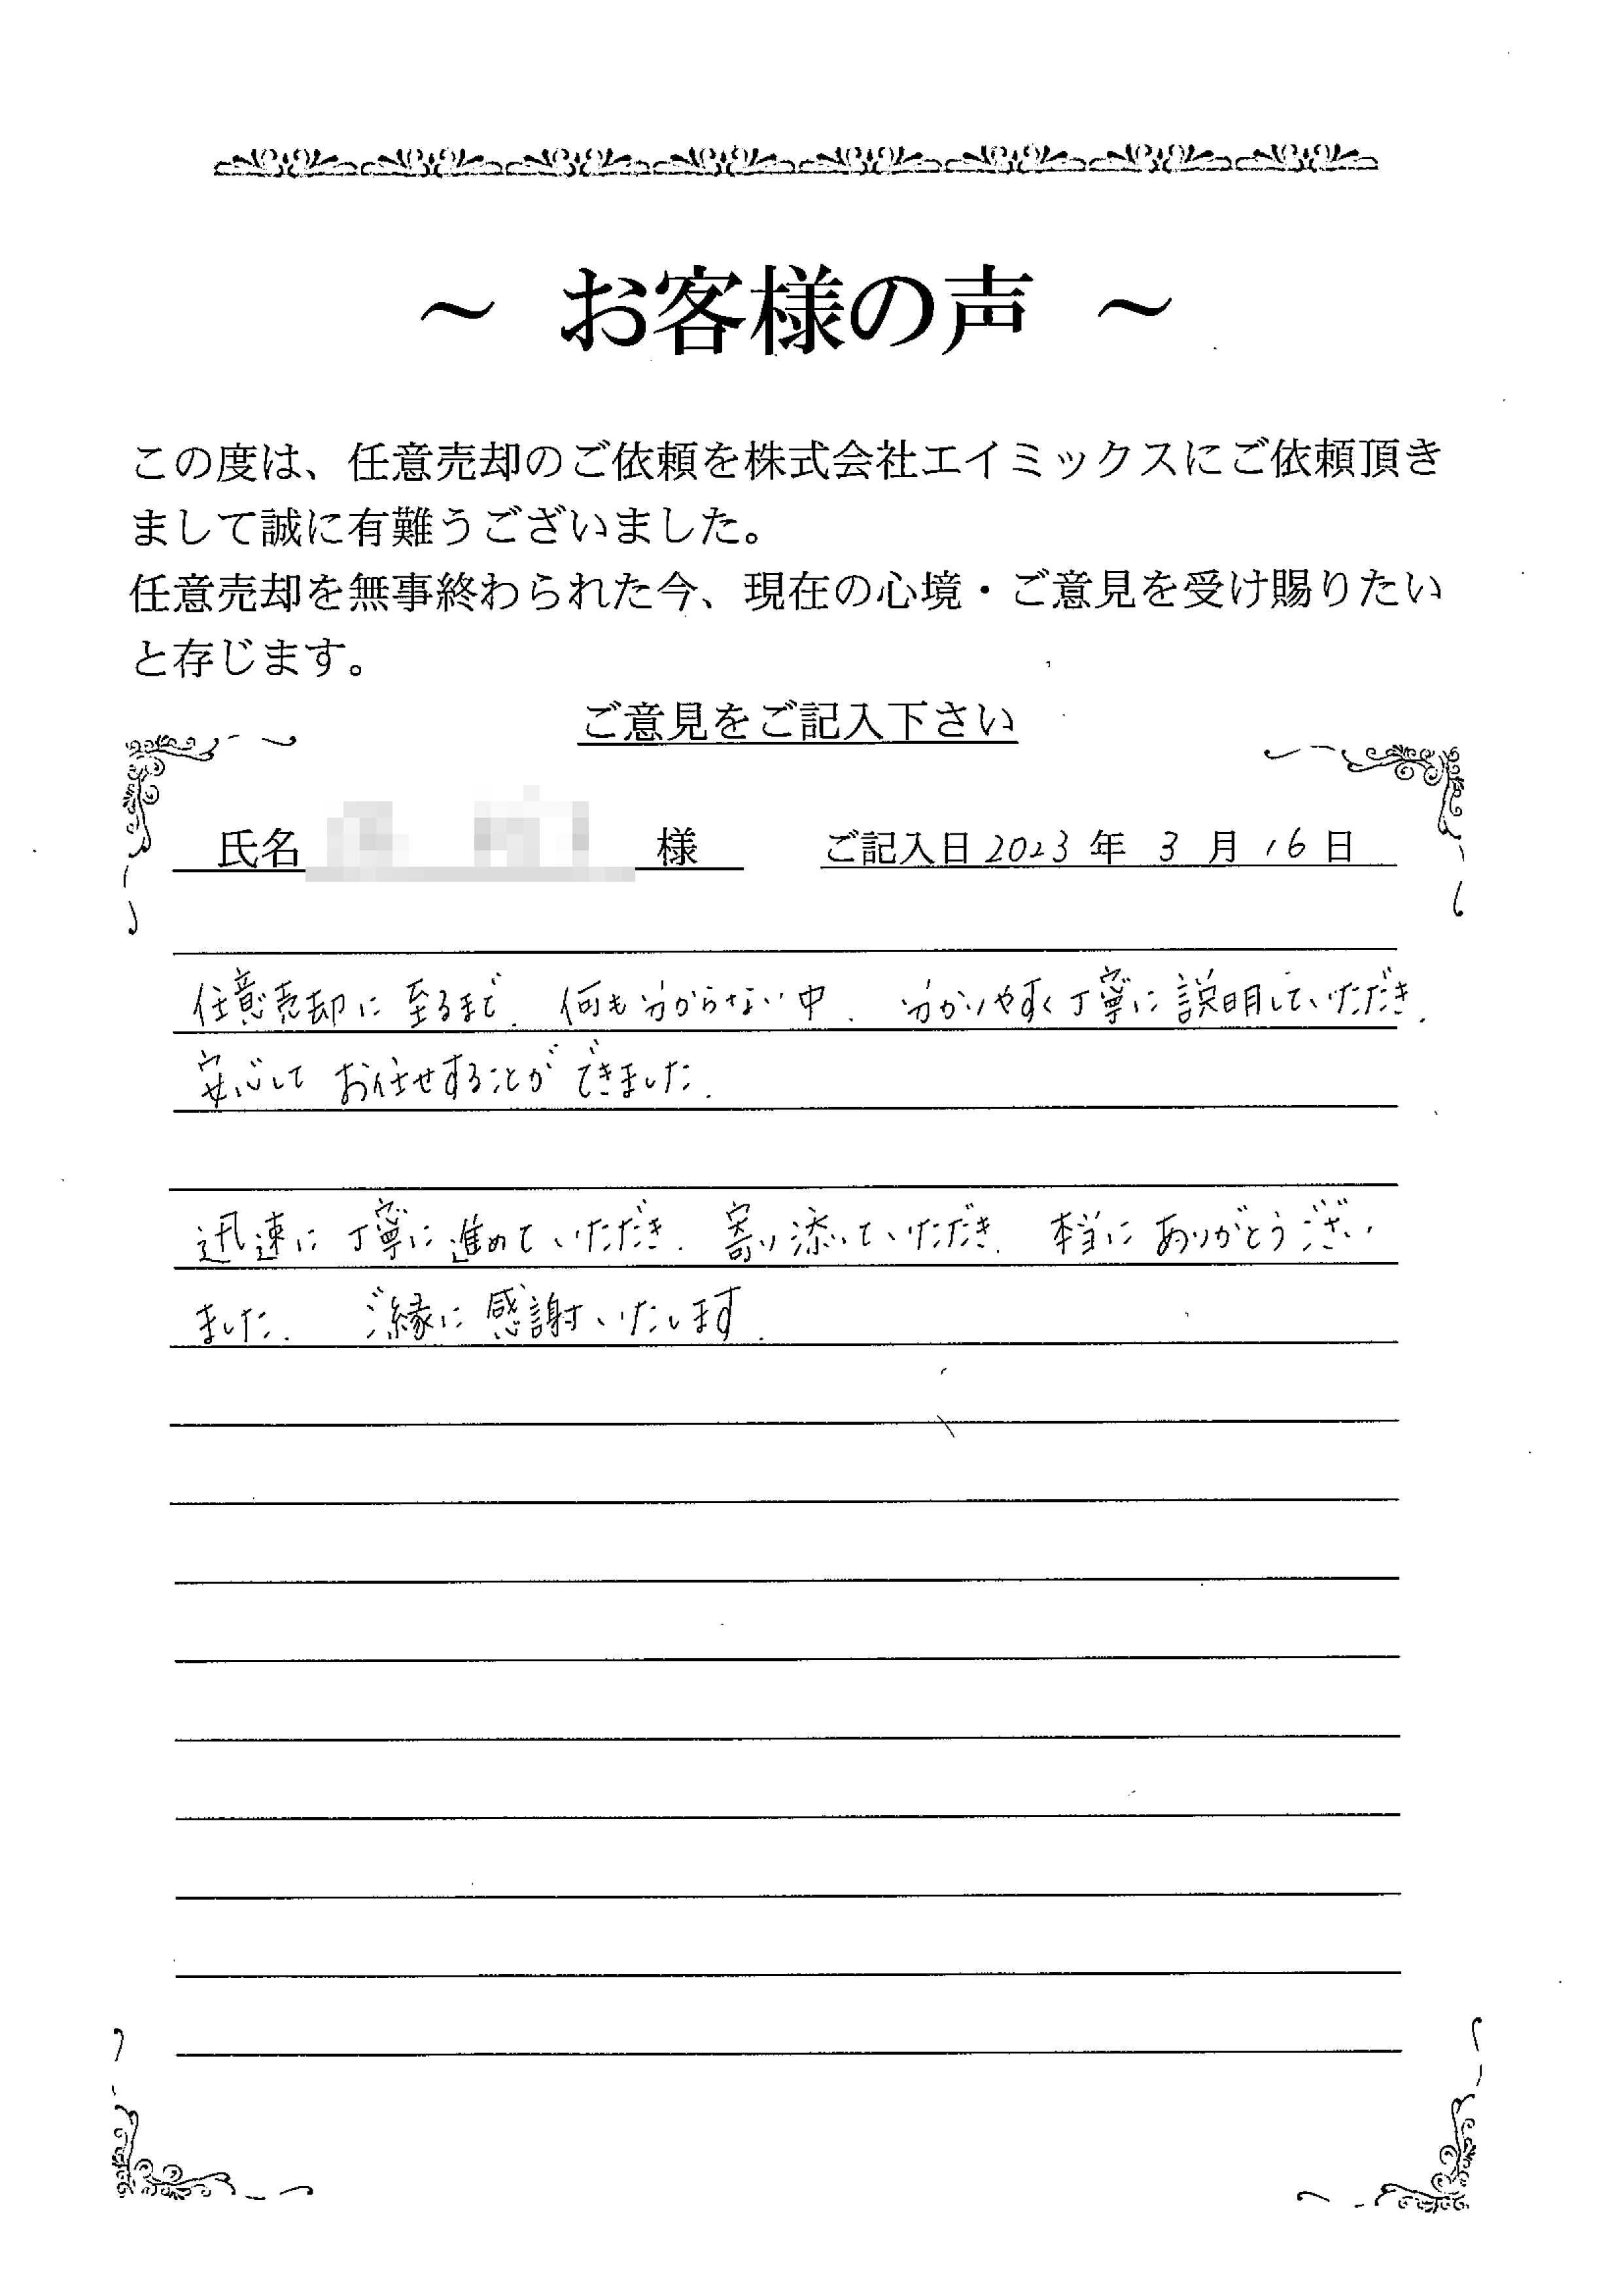 ～ お客様の声 ～
この度は、任意売却のご依頼を株式会社エイミックスにご依頼頂き
まして誠に有難うございました。
任意売却を無事終わられた今、現在の心境・ご意見を受け賜りたい
と存じます。
ご意見をご記入下さい
氏名 様 ご記入日 2023 年 3 月 16 日
任意売却に至るまで、何も分からない中、分かりやすく丁寧に説明していただき、
安心してお任せすることができました。
迅速に丁寧に進めていただき、寄り添っていただき、本当にありがとうござい
ました。 ご縁に感謝いたします。